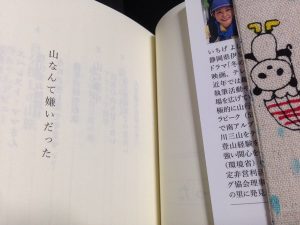 山なんて嫌いだった
いちげ よ
静岡県伊
ドラマ「冬
映画、テ
近年では
執筆活動
場を広げ
極的に山
ラピーク(5
で南アル
川三山を
登山経験を
強い関心を
(環境省)
定非営利
グ協会理
の里に発見